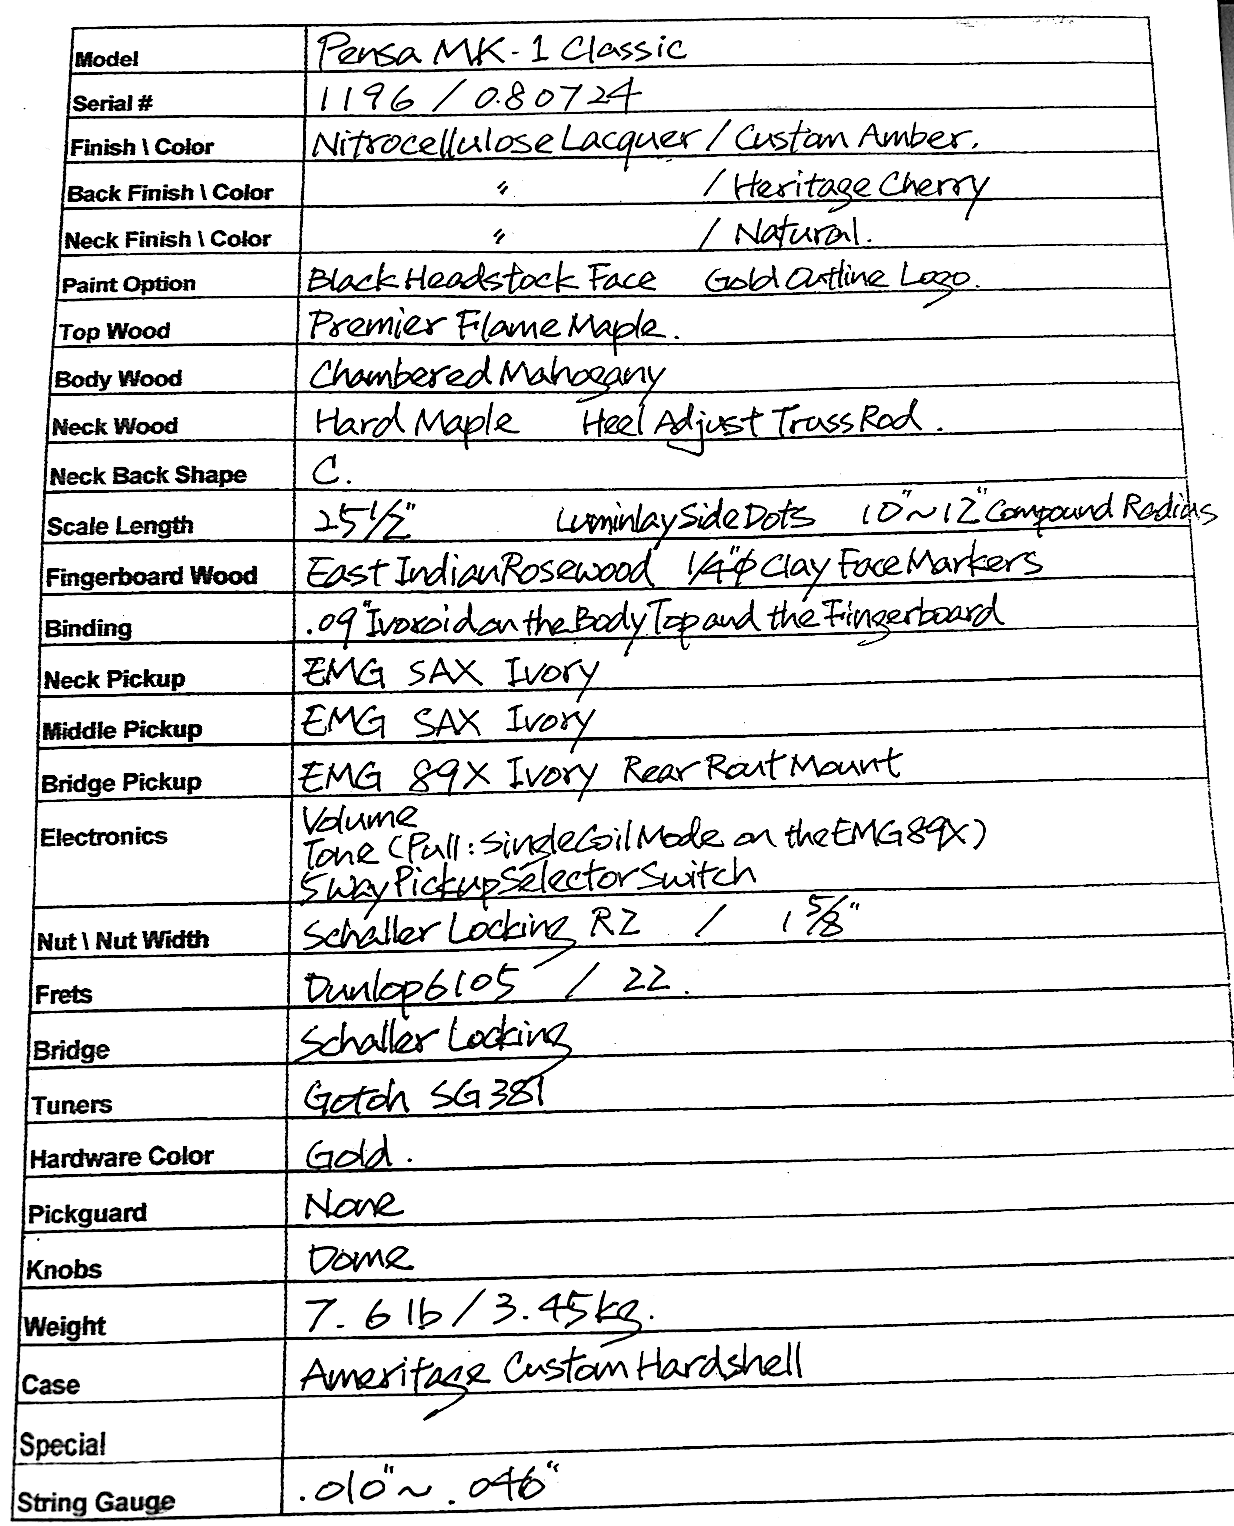 Model Pensa MK-1 Classic
Serial # 1196 / 080724
Finish \ Color Nitrocellulose Lacquer / Custom Amber.
Back Finish \ Color " / Heritage Cherry
Neck Finish \ Color " / Natural.
Paint Option Black Headstock Face Gold Outline Logo.
Top Wood Premier Flame Maple.
Body Wood Chambered Mahogany
Neck Wood Hard Maple Heel Adjust Truss Rod.
Neck Back Shape C.
Scale Length 25 1/2" Luminlay Side Dots 10"~12" Compound Radius
Fingerboard Wood East Indian Rosewood 1/4"φ Clay Face Markers
Binding .09" Ivoroid on the Body Top and the Fingerboard
Neck Pickup EMG SAX Ivory
Middle Pickup EMG SAX Ivory
Bridge Pickup EMG 89X Ivory Rear Rout Mount
Electronics Volume
Tone (Pull: Single Coil Mode on the EMG89X)
5 way Pickup Selector Switch
Nut \ Nut Width Schaller Locking R2 / 1 5/8"
Frets Dunlop 6105 / 22.
Bridge Schaller Locking
Tuners Gotoh SG381
Hardware Color Gold.
Pickguard None
Knobs Dome
Weight 7.6 lb / 3.45kg.
Case Ameritage Custom Hardshell
Special
String Gauge .010"~.046"